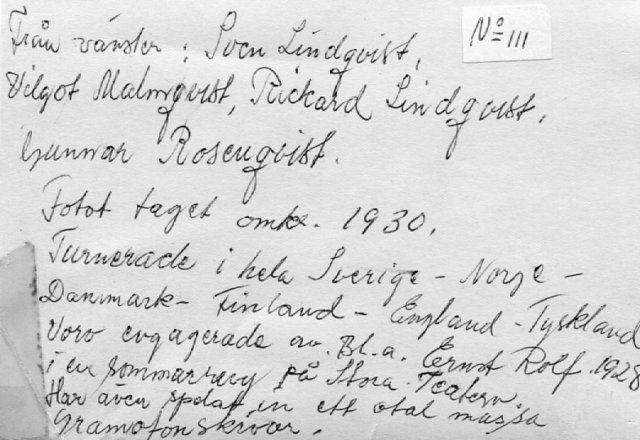 Från vänster: Sven Lindqvist,
No III
Vilgot Malmqvist, Rickard Lindqvist,
Gunnar Rosenqvist.
Fotot taget omkr. 1930.
Turnerade i hela Sverige - Norge -
Danmark - Finland - England - Tyskland
Voro engagerade av. Bl.a. Ernst Rolf. 1928
i en sommarrevy på Stora Teatern.
Har även spelat in ett otal massa
Gramofonskivor.